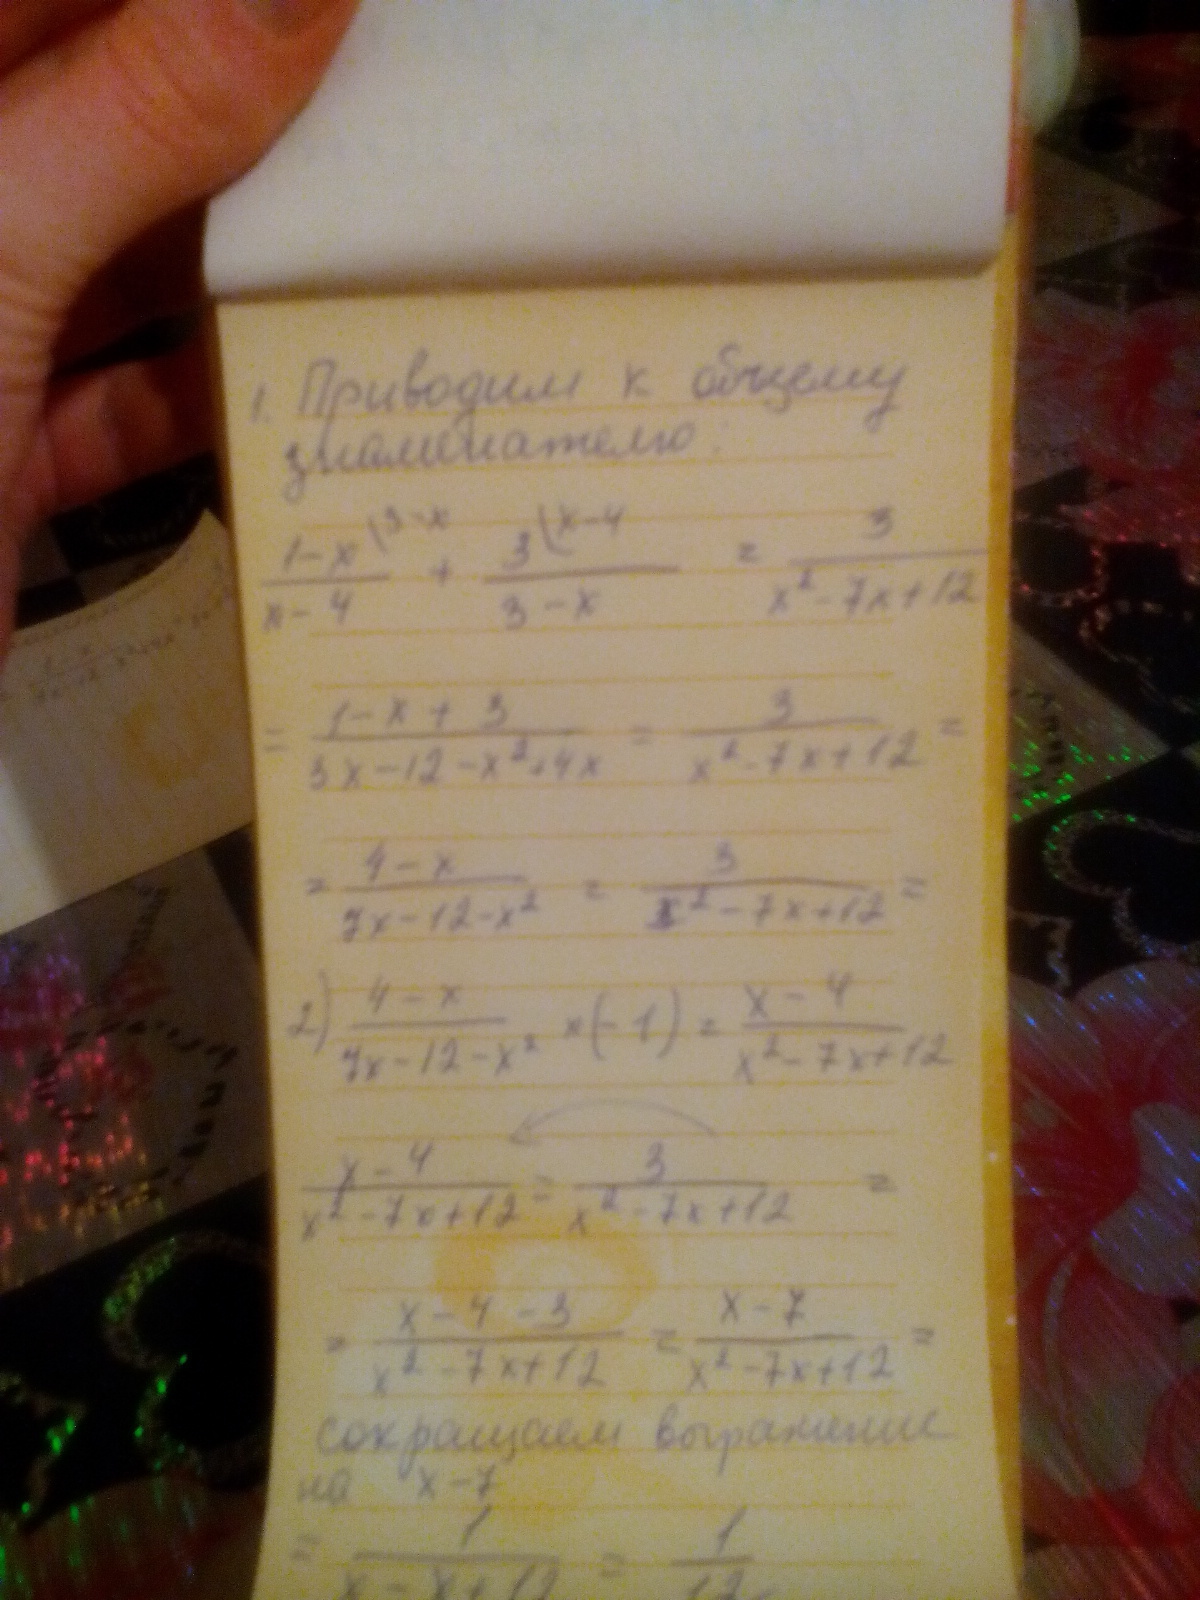 1. Приводим к общему
знаменателю:
1-x \3-x / x-4 + 3 \x-4 / 3-x = 3 / x²-7x+12
= 1-x+3 / 3x-12-x²+4x = 3 / x²-7x+12 =
= 4-x / 7x-12-x² = 3 / x²-7x+12 =
2) 4-x / 7x-12-x² ×(-1) = x-4 / x²-7x+12
x-4 / x²-7x+12 = 3 / x²-7x+12 =
= x-4-3 / x²-7x+12 = x-7 / x²-7x+12 =
сокращаем выражение
на x-7
= 1 / x-x+12 = 1 / 12